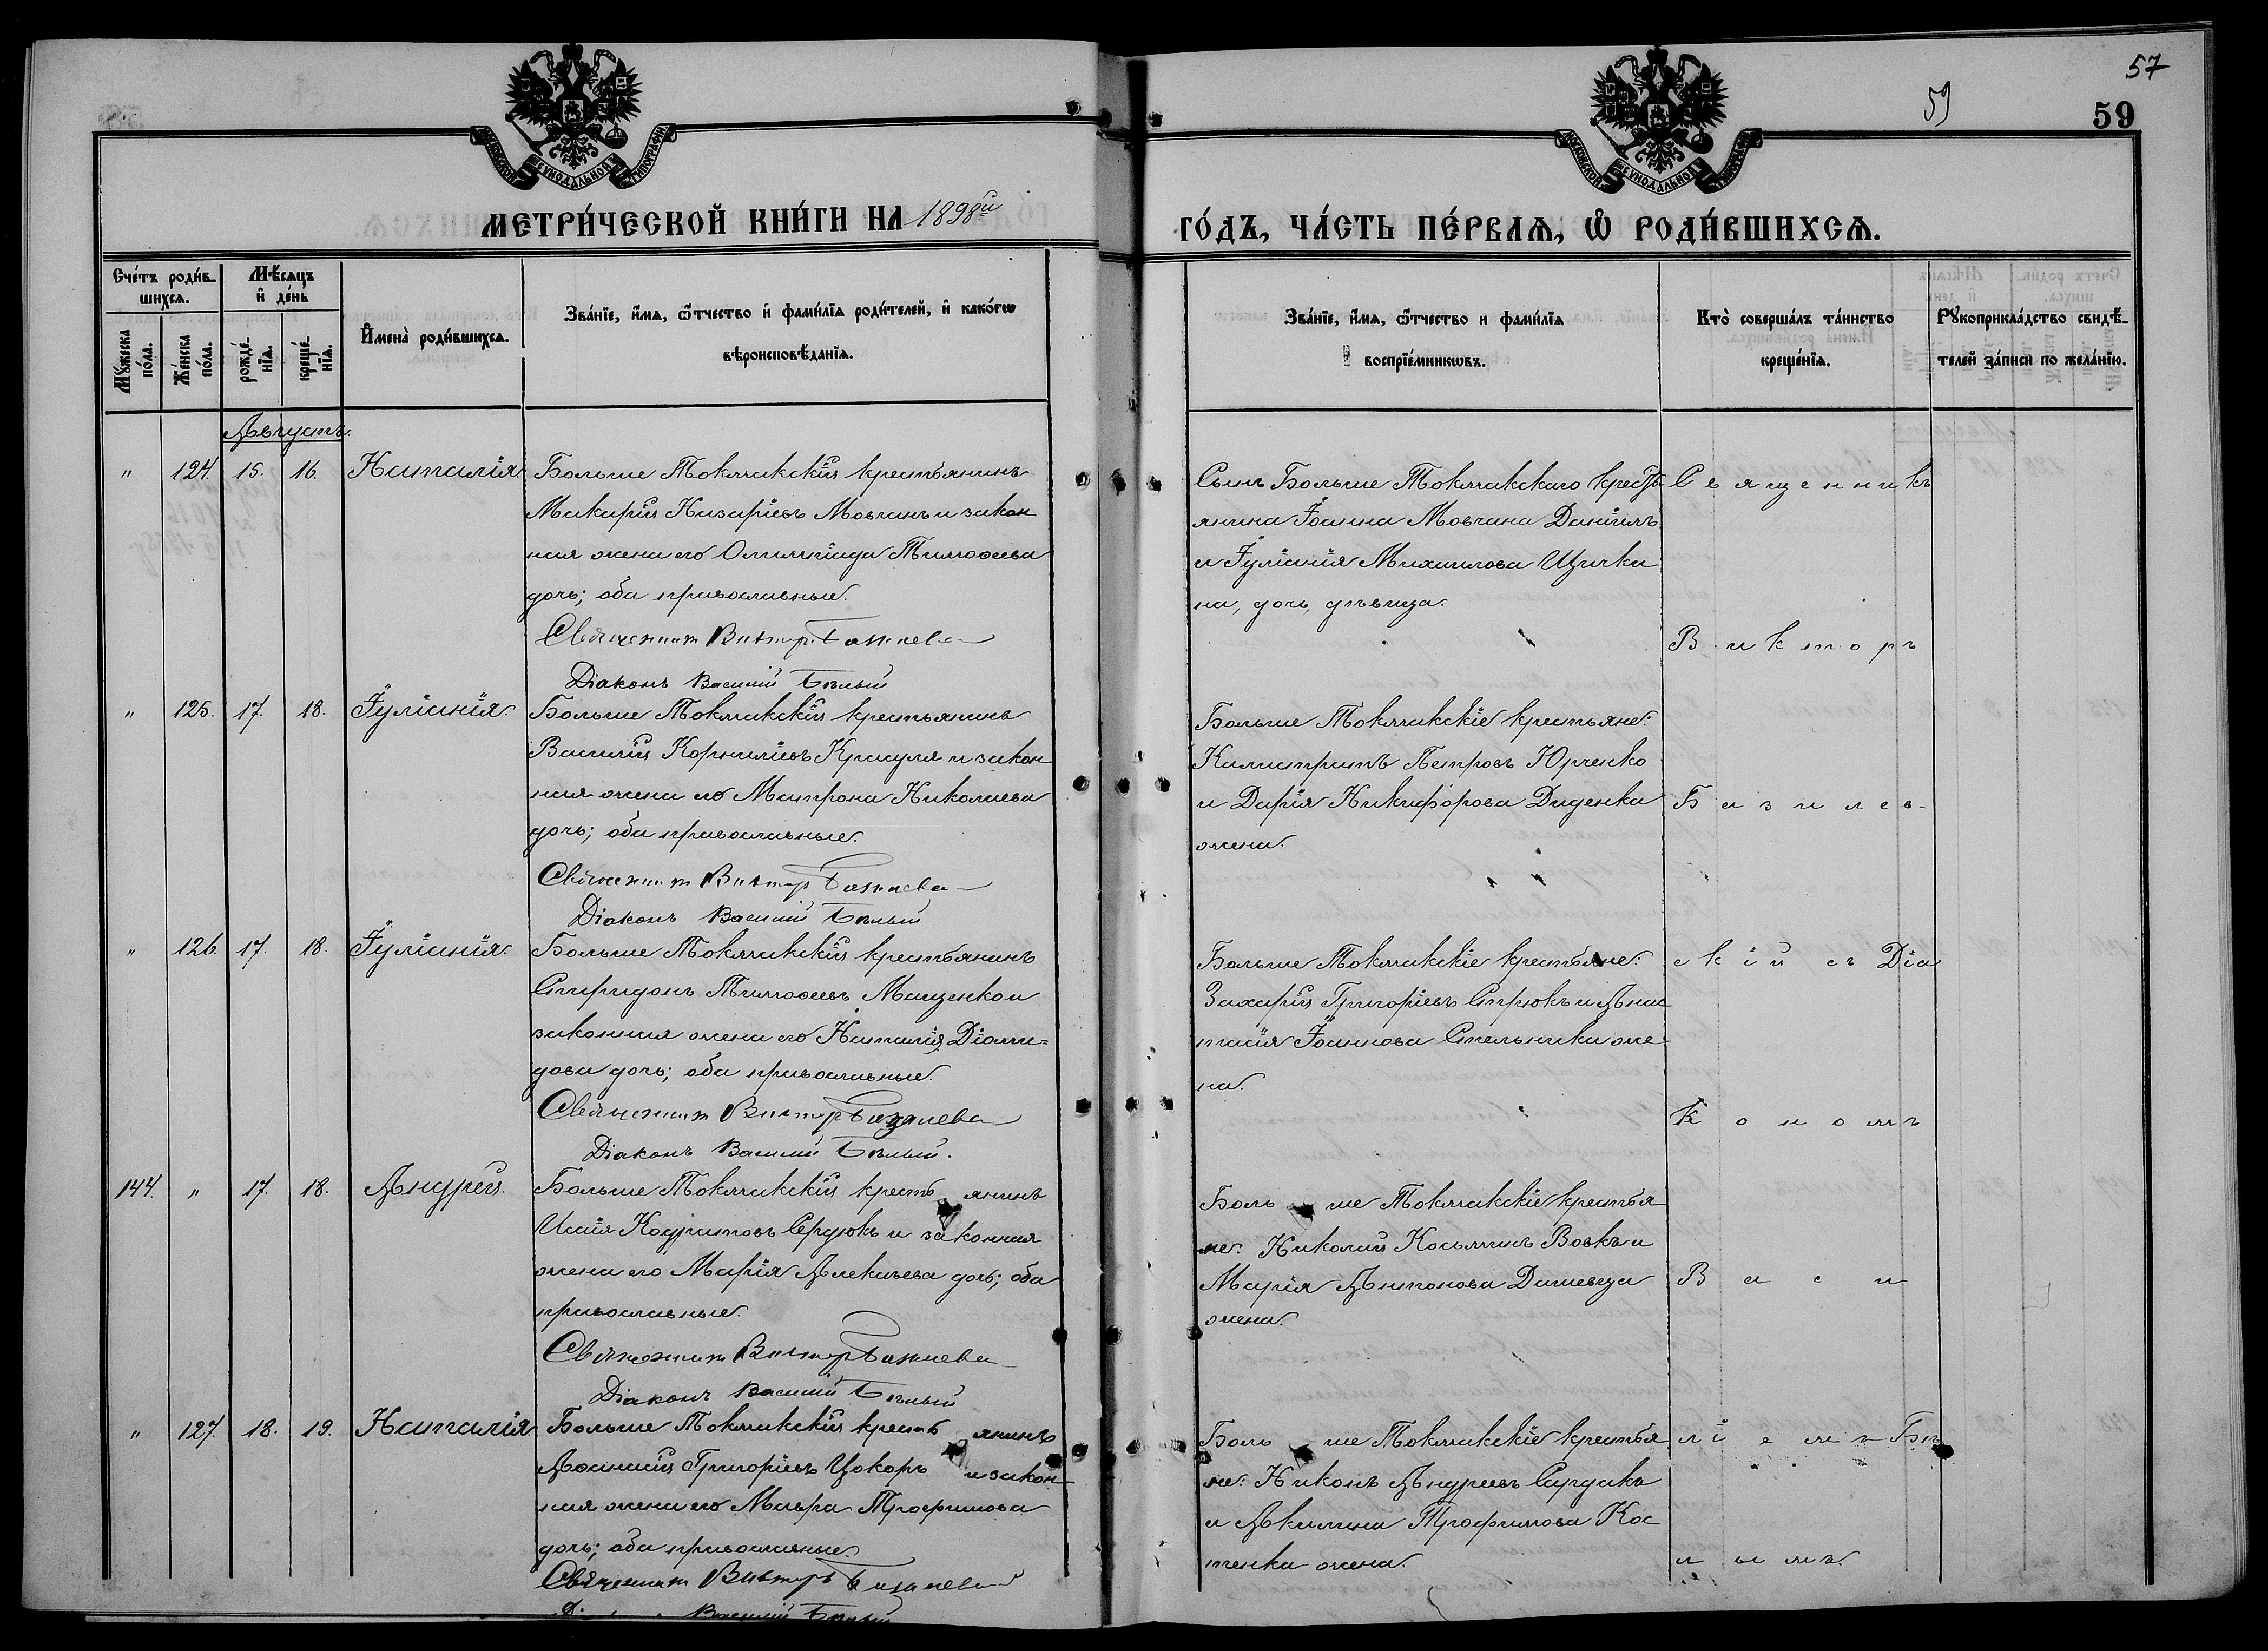 57
59
59
МОСКОВСКОЙ СУНОДАЛЬНОЙ ТИПОГРАФІИ
МОСКОВСКОЙ СУНОДАЛЬНОЙ ТИПОГРАФІИ
МЕТРИ́ЧЕСКОЙ КНИ́ГИ НА 1898й
ГО́ДЪ, ЧА́СТЬ ПЕ́РВАѦ, Ѡ РОДИ́ВШИХСѦ.
Сче́тъ роди́в-
шихсѧ.
Мꙋ́жеска по́ла.
Же́нска по́ла.
Мѣ́сяцъ
и де́нь
рожде́-
нїѧ.
креще́-
нїѧ.
Имена̀ роди́вшихсѧ.
Зва́нїе, и́мѧ, ѻ́тчество и фами́лїѧ роди́телей, и како́гѡ
вѣроисповѣ́данїѧ.
Зва́нїе, и́мѧ, ѻ́тчество и фами́лїѧ
воспрїе́мникѡвъ.
Кто̀ соверша́лъ та́инство
креще́нїѧ.
Рꙋкоприкла́дство свидѣ́-
телей за́писи по жела́нїю.
Августъ.
" 124. 15. 16. Наталія
Больше Токмакскій крестьянинъ
Макарій Назаріевъ Мовчанъ и закон
ная жена его Олимпіада Тимоѳеева
дочь; оба православные.
Священникъ Викторъ Базилев
Діаконъ Василій Бѣлый
Сынъ Больше Токмакскаго кресть
янина Іоанна Мовчана Даніилъ
и Іуліанія Михаилова Щички
на, дочь, дѣвица.
Священникъ
Викторъ
" 125. 17. 18. Іуліанія.
Больше Токмакскій крестьянинъ
Василій Корниліевъ Крауля и закон
ная жена его Матрона Николаева
дочь; оба православные.
Священникъ Викторъ Базилев
Діаконъ Василій Бѣлый
Больше Токмакскіе крестьяне:
Калистратъ Петровъ Юрченко
и Дарія Никифорова Диденка
жена.
Базилев-
" 126. 17. 18. Іуліанія.
Больше Токмакскій крестьянинъ
Спиридонъ Тимоѳеевъ Мащенко и
законная жена его Наталія Діоми=
дова дочь; оба православные.
Священникъ Викторъ Базилев
Діаконъ Василій Бѣлый.
Больше Токмакскіе крестьяне:
Захарій Григоріевъ Стрюкъ и Анас
тасія Іоаннова Стельмика же
на.
скій съ Діа
кономъ
144. " 17. 18. Андрей.
Больше Токмакскій крестьянинъ
Исаія Кодратовъ Сердюкъ и законная
жена его Марія Алексѣева дочь; оба
православные.
Священникъ Викторъ Базилев
Діаконъ Василій Бѣлый
Больше Токмакскіе крестья
не: Николай Косьминъ Вовкъ и
Марія Антонова Дашевца
жена.
Васи
" 127. 18. 19. Наталія.
Больше Токмакскій крестьянинъ
Аѳанасій Григоріевъ Цокоръ и закон
ная жена его Мавра Трофимова
дочь; оба православные.
Священникъ Викторъ Базилев
Василій Бѣлый
Больше Токмакскіе крестья
не: Никонъ Андреевъ Сардакъ
и Акилина Трофимова Кос
тенка жена.
ліемъ Бѣ
лымъ.